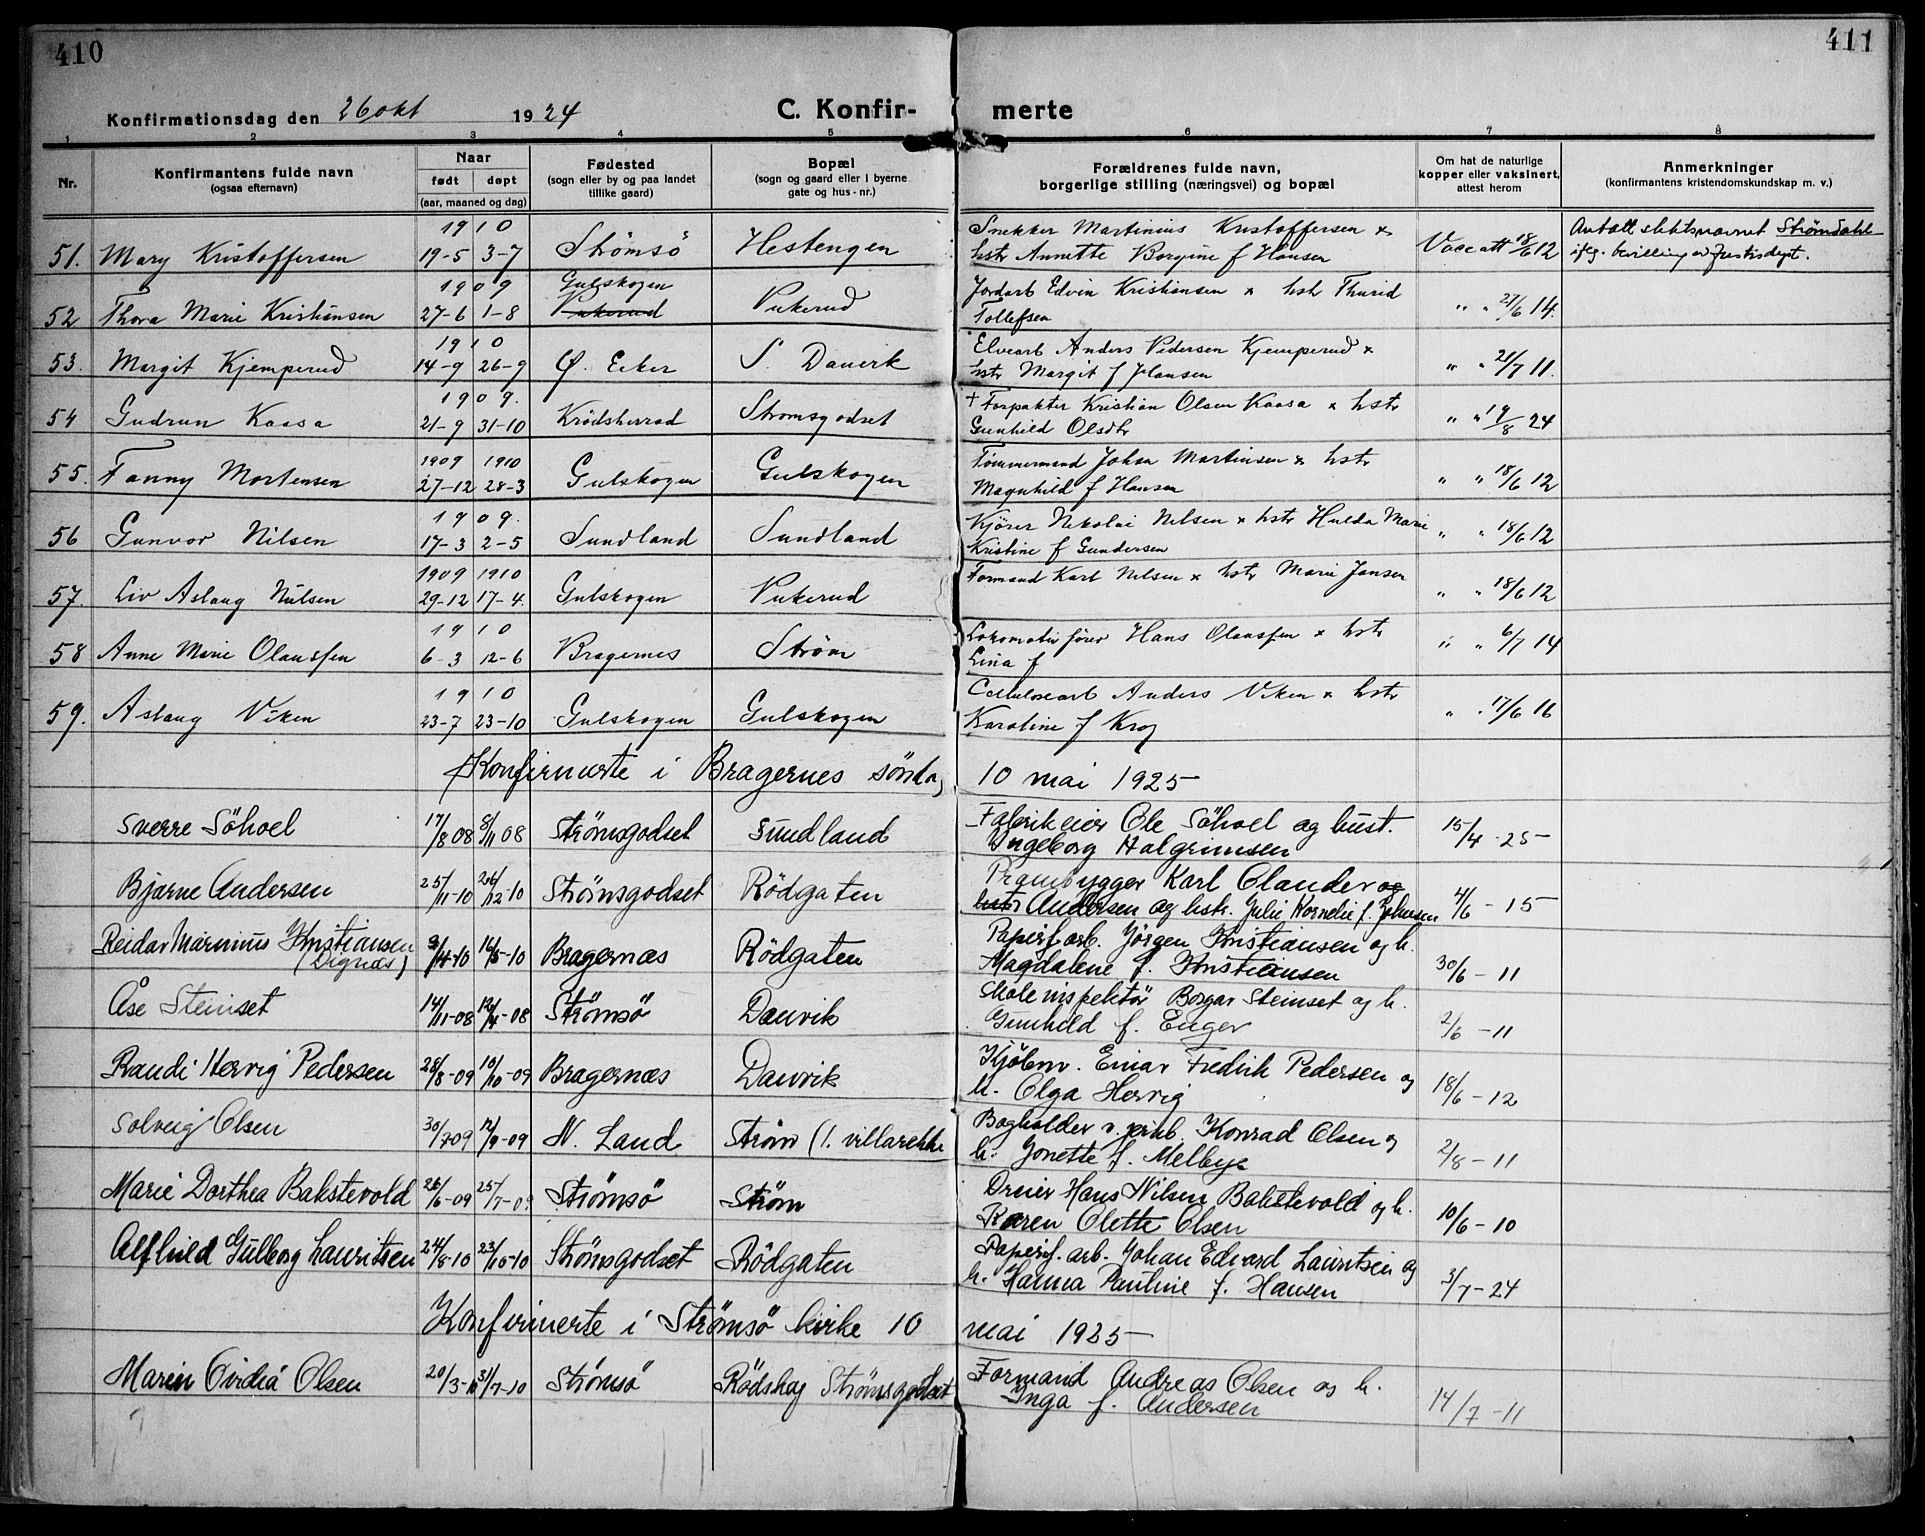 410
411
Konfirmationsdag den 26 okt 1924
C. Konfir-
merte
1 2 3 4 5 6 7 8
Nr.
Konfirmantens fulde navn
(ogsaa efternavn)
Naar
født døpt
(aar, maaned og dag)
Fødested
(sogn eller by og paa landet
tillike gaard)
Bopæl
(sogn og gaard eller i byerne
gate og hus - nr.)
Forældrenes fulde navn,
borgerlige stilling (næringsvei) og bopæl
Om hat de naturlige
kopper eller vaksinert,
attest herom
Anmerkninger
(konfirmantens kristendomskundskap m. v.)
1910 Snekker Martinius Kristoffersen x Antatt slektsnavnet Strömdahl
51. Mary Kristoffersen 19-5 3-7 Strømsö Hestengen hstr Annette Borgine f Hansen Vacc att 18/6 12 iflg. bevilling av Justisdept.
1909 Gulskogen Jordarb Edvin Kristiansen x hstr Thurid
52 Thora Marie Kristiansen 27-6 1-8 Pukerud Pukerud Tollefsen " " 27/6 14.
1910 Elvearb Anders Pedersen Kjemperud x
53. Margit Kjemperud 14-9 26-9 Ø. Eeker S. Danvik hstr Margit f Johansen " " 21/7 11.
1909. + Forpakter Kristian Olsen Kaasa x hstr
54 Gudrun Kaasa 21-9 31-10 Krødsherrad Strømsgodset Gunhild Olsdtr " " 19/8 24
1909 1910 Tømmermand Johan Martinsen x hstr
55. Fanny Mortensen 27-12 28-3 Gulskogen Gulskogen Magnhild f Hansen " " 18/6 12
1909. Kjører Nikolai Nilsen x hstr Hulda Marie
56 Gunvor Nilsen 17-3 2-5 Sundland Sundland Kristine f Gundersen " " 18/6 12
1909 1910 Formand Karl Nilsen x hstr Marie Jansen
57. Liv Aslaug Nilsen 29-12 17-4. Gulskogen Pukerud " " 18/6 12
1910 Lokomotivfører Hans Olaussen x hstr
58 Anne Marie Olaussen 6-3 12-6 Bragernes Strøm Lina f " " 6/7 14
1910 Cellulosearb Anders Viken x hstr
59. Aslaug Viken 23-7 23-10 Gulskogen Gulskogen Karoline f Krog " " 17/6 16
Konfirmerte i Bragernes söndag 10 mai 1925
Sverre Söhoel 17/8 08 8/11 08 Strömsgodset Sundland Fabrikeier Ole Söhoel og hust. 15/4 - 25
Ingeborg Halgrimsen
Bjarne Andersen 25/11-10 26/12-10 Strömsgodset Rödgaten Prambygger Karl Olander og 4/6 - 15
hstr Andersen og hstr. Julie Kornelie f. Johnsen
Reidar Marinius Kristiansen 9/4-10 16/5-10 Bragernæs Rödgaten Papirf. arb. Jörgen Kristiansen og h. 30/6 - 11
(Dignæs) Magdalene f. Kristiansen
Åse Steinset 14/11-08 12/4-08 Strömsö Danvik Skoleinspektör Borgar Steinset og h. 2/6 - 11
Gunhild f. Enger
Randi Hervig Pedersen 28/8-09 10/10-09 Bragernæs Danvik Kjöbm. Einar Fredrik Pedersen og 18/6 - 12
h. Olga Hervig
Solveig Olsen 30/7 09 12/9-09 N. Land Ström (1. villarekke Bogholder v. Konrad Olsen og 2/8 - 11
h. Jonette f. Melbye
Marie Dorthea Bakstevold 26/6-09 25/7-09 Strömsö Ström Dreier Hans Nilsen Bakstevold og h. 10/6 - 10
Karen Olette Olsen
Alfhild Gulborg Lauritsen 24/8-10 23/10-10 Strömsgodset Rödgaten Papirf. arb. Johan Edvard Lauritsen og 3/7 - 24
h. Hanna Pauline f. Hansen
Konfirmerte i Strömsö kirke 10 mai 1925
Marien Ovidia Olsen 20/3-10 31/7-10 Strömsö Rödshag Strömsgodset Formand Andreas Olsen og h. 14/7 - 11
Inga f. Andersen